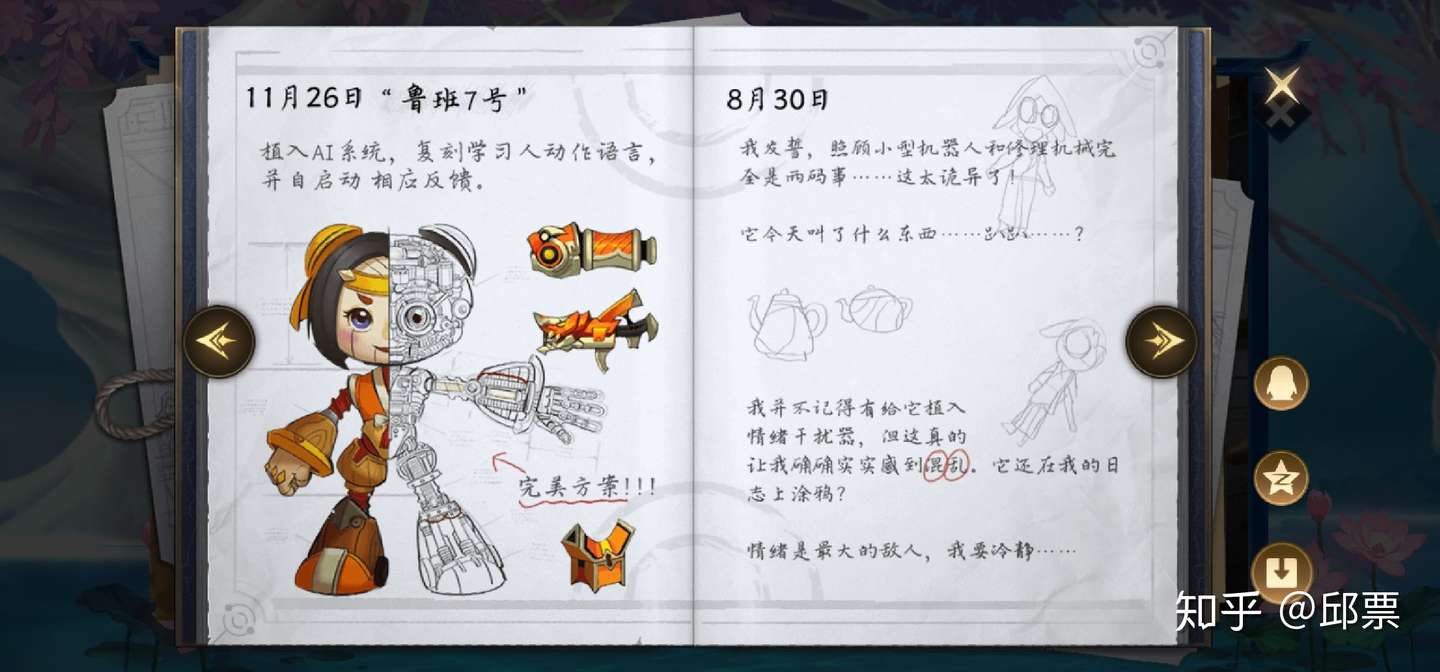 11月26日 “鲁班7号”
植入AI系统，复刻学习人动作语言，
并自启动 相应反馈。
完美方案!!!
8月30日
我发誓，照顾小型机器人和修理机械完
全是两码事……这太诡异了！
它今天叫了什么东西……爸爸……？
我并不记得有给它植入
情绪干扰器，但这真的
让我确确实实感到混乱。它还在我的日
志上涂鸦？
情绪是最大的敌人，我要冷静……
知乎 @邱票